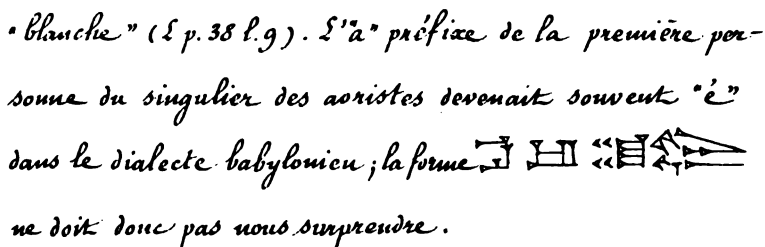 "blanche" (L p. 38 l. 9). L'"a" préfixe de la première per-
sonne du singulier des aoristes devenait souvent "é"
dans le dialecte babylonien; la forme
ne doit donc pas nous surprendre.